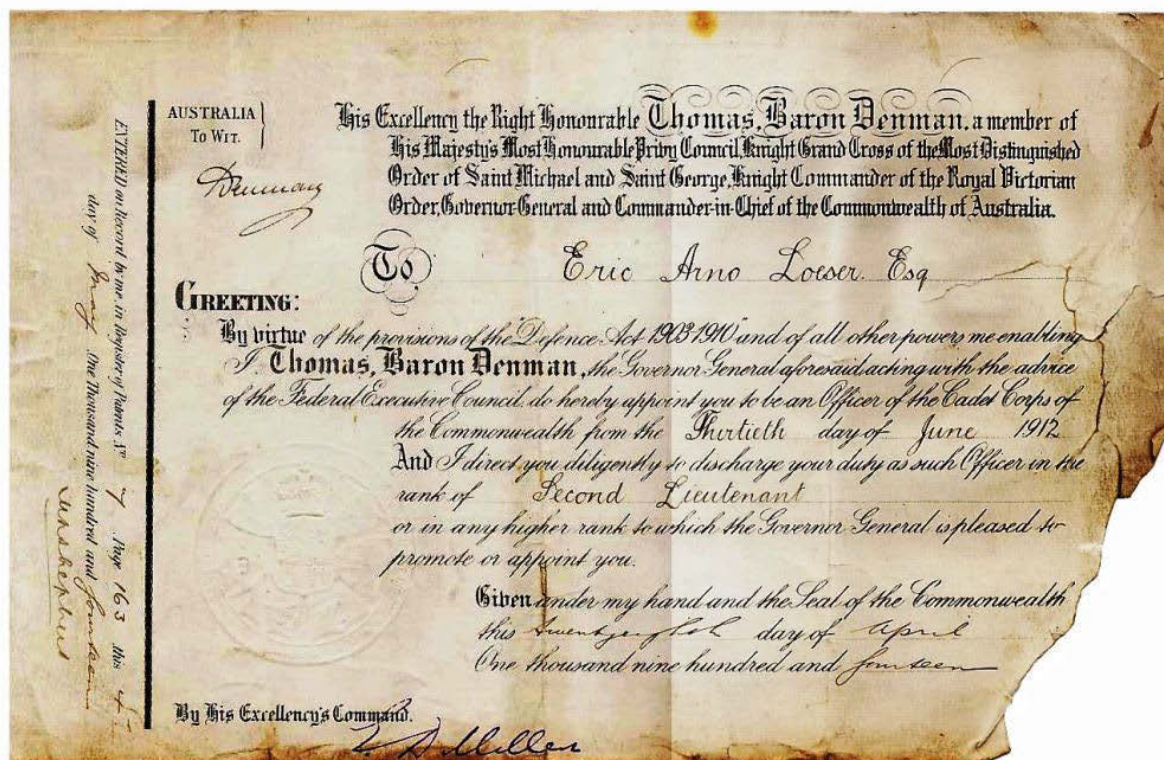 AUSTRALIA
To Wit.
Denman
His Excellency the Right Honourable Thomas, Baron Denman, a member of
His Majesty's Most Honourable Privy Council, Knight Grand Cross of the Most Distinguished
Order of Saint Michael and Saint George, Knight Commander of the Royal Victorian
Order, Governor-General and Commander-in-Chief of the Commonwealth of Australia.
To Eric Arno Loeser. Esq
GREETING:
By virtue of the provisions of the "Defence Act 1903-1910" and of all other powers me enabling
I, Thomas, Baron Denman, the Governor General aforesaid acting with the advice
of the Federal Executive Council, do hereby appoint you to be an Officer of the Cadet Corps of
the Commonwealth from the Thirtieth day of June 1912
And I direct you diligently to discharge your duty as such Officer in the
rank of Second Lieutenant
or in any higher rank to which the Governor General is pleased to
promote or appoint you.
Given under my hand and the Seal of the Commonwealth
this twenty eighth day of April
One thousand nine hundred and fourteen
By His Excellency's Command.
E. D. Millen
ENTERED on Record by me, in Register of Patents No 7 Page 163 this 4th
day of May One Thousand nine hundred and fourteen